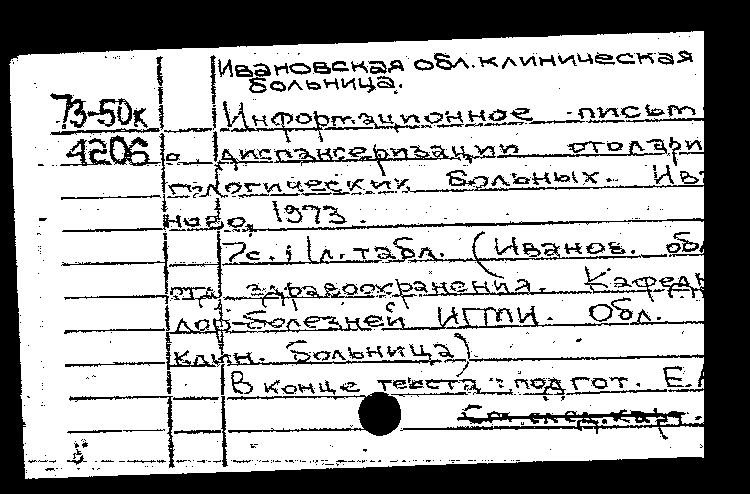 Ивановская обл. клиническая
больница.
73-50к Информационное письм
4206 о диспансеризации отолари
гологических больных. Ива
ново, 1973.
7с. 1 л. табл. (Иванов. обл
отд. здравоохранения. Кафедр
лор-болезней ИГМИ. Обл.
клин. больница).
В конце текста: подгот. Е.
См. след. карт.